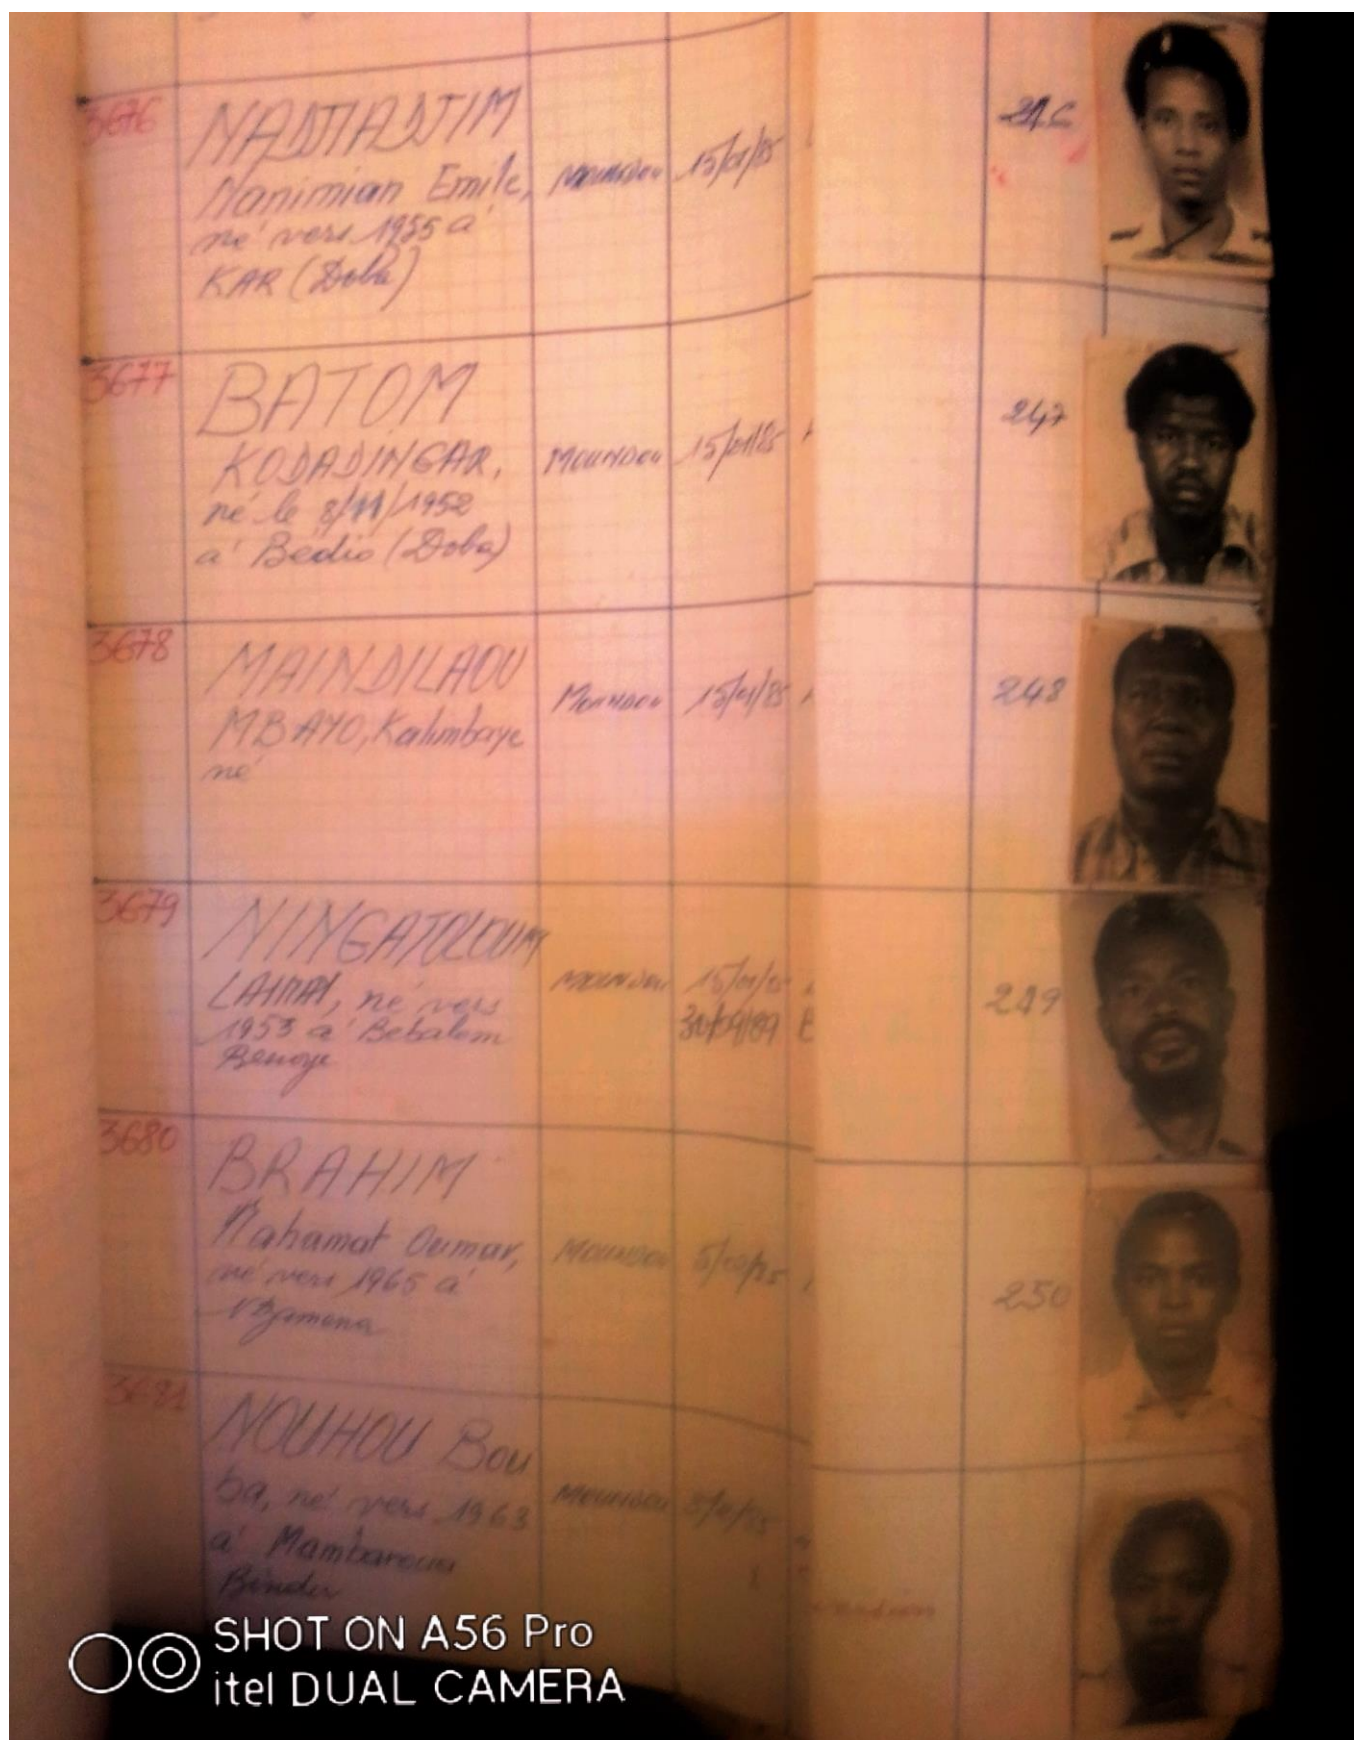 3676
NADJIADJIM
Nanimian Emile,
né vers 1955 à
KAR (Doba)
Moundou
15/01/85
246
3677
BATOM
KODADINGAR,
né le 8/11/1952
à Bédio (Doba)
Moundou
15/01/85
247
3678
MAINDILAOU
MBAYO, Kalimbaye
né
Moundou
15/01/85
248
3679
NINGATOLOUM
né vers
1953 à Bebalem
Benoye
Moundou
15/01/85
249
3680
BRAHIM
Mahamat Oumar,
né vers 1965 à
Ndjamena
Moundou
250
3681
NOUHOU Bou
ba, né vers 1963
à
Binder
Moundou
SHOT ON A56 Pro
itel DUAL CAMERA